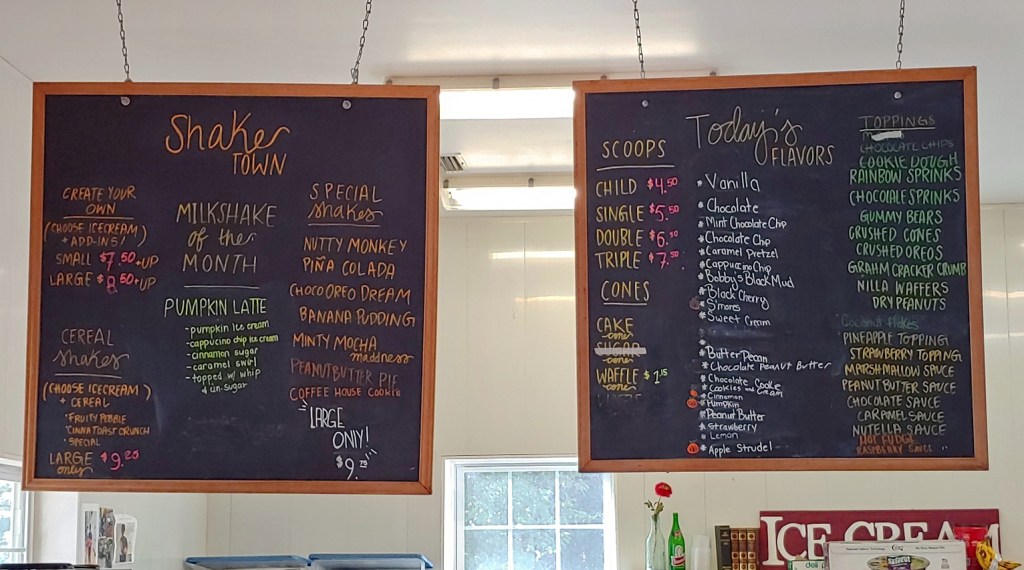 Shake
TOWN
CREATE YOUR
OWN
(CHOOSE ICECREAM)
+ ADD-INS!
SMALL $7.50+UP
LARGE $8.50+UP
CEREAL
shakes
(CHOOSE ICECREAM)
+ CEREAL
• FRUITY PEBBLE
• CINNA TOAST CRUNCH
• SPECIAL
LARGE $9.25
only
MILKSHAKE
of the
MONTH
PUMPKIN LATTE
- pumpkin ice cream
- cappucino chip ice cream
- cinnamon sugar
- caramel swirl
- topped w/ whip
SPECIAL
shakes
NUTTY MONKEY
PIÑA COLADA
CHOCO OREO DREAM
BANANA PUDDING
MINTY MOCHA
maddness
PEANUTBUTTER PIE
COFFEE HOUSE COOKIE
LARGE
ONLY!
SCOOPS
CHILD $4.50
SINGLE $5.50
DOUBLE $6.50
TRIPLE $7.50
CONES
CAKE
cone
SUGAR
cone
WAFFLE $1.15
cone
Today's
FLAVORS
* Vanilla
* Chocolate
* Mint Chocolate Chip
* Chocolate Chip
* Caramel Pretzel
* Cappuccino Chip
* Bobby's Black Mud
* Black Cherry
* S'mores
* Sweet Cream
* Butter Pecan
* Chocolate Peanut Butter
* Chocolate Cookie
* Cookies and Cream
* Cinnamon
* Pumpkin
* Peanut Butter
* Strawberry
* Lemon
* Apple Strudel
TOPPINGS
CHOCOLATE CHIPS
COOKIE DOUGH
RAINBOW SPRINKS
CHOCOLATE SPRINKS
GUMMY BEARS
CRUSHED CONES
CRUSHED OREOS
GRAHM CRACKER CRUMB
NILLA WAFFERS
DRY PEANUTS
Coconut flakes
PINEAPPLE TOPPING
STRAWBERRY TOPPING
MARSHMALLOW SAUCE
PEANUT BUTTER SAUCE
CHOCOLATE SAUCE
CARAMEL SAUCE
NUTELLA SAUCE
HOT FUDGE
RASPBERRY SAUCE
ICE CREAM
deli